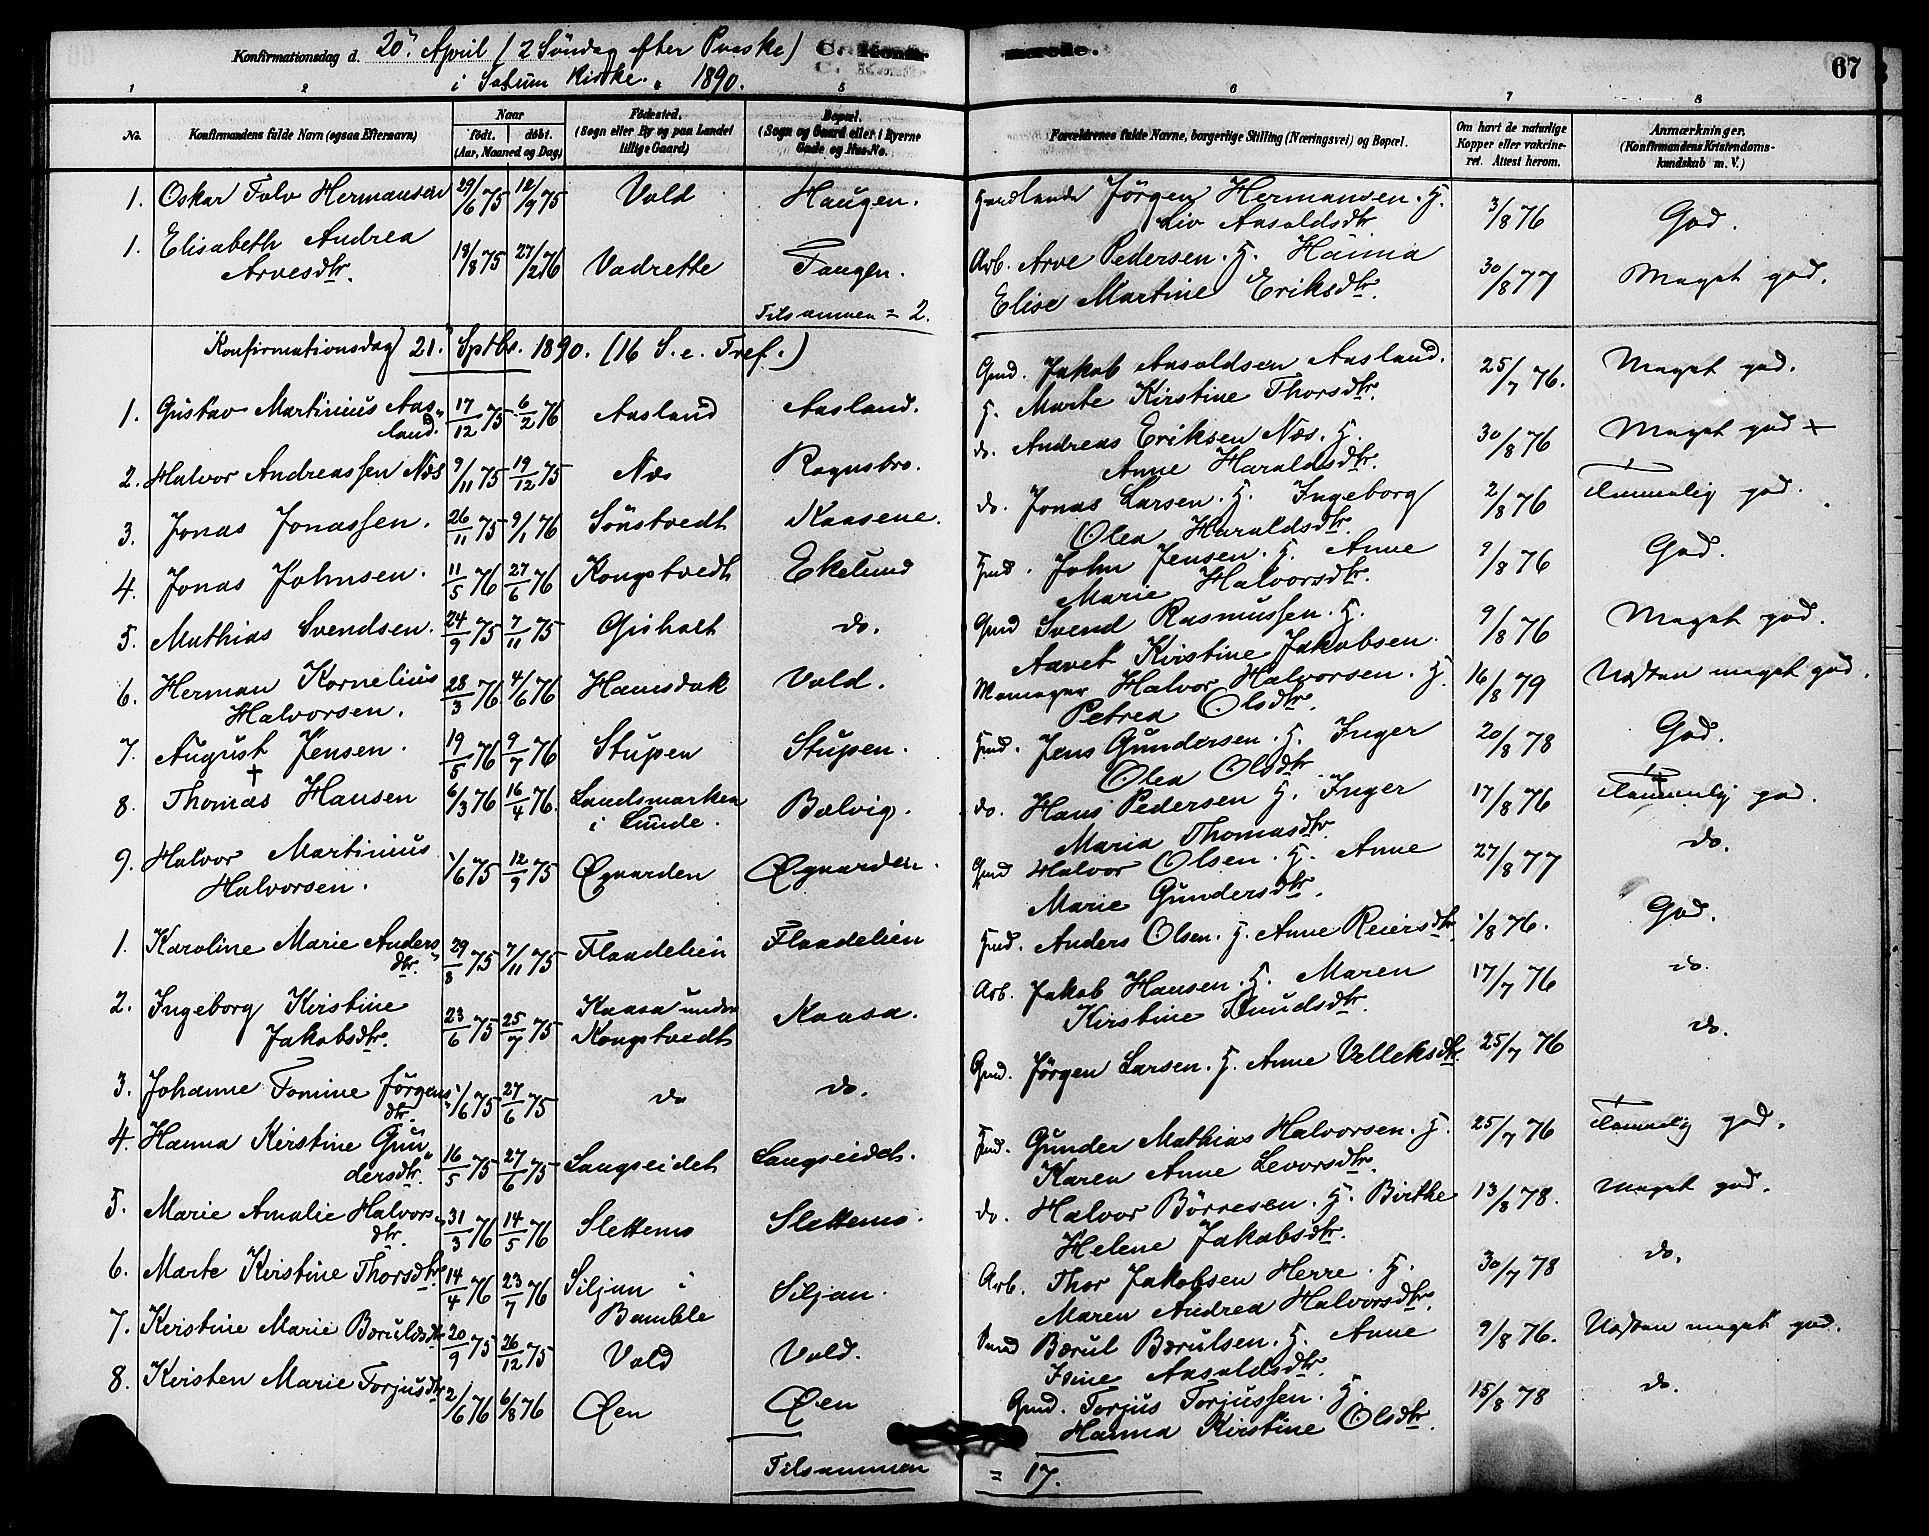 67
Konfirmationsdag d. 20de April (2 Söndag efter Paaske)
i Kirke. 1890.
1 2 5 6 7 8
No. Konfirmandens fulde Navn (ogsaa Efternavn) Naar født. døbt. (Aar, Maaned og Dag) Fødested. (Sogn eller By og paa Landet tillige Gaard) Bopæl. (Sogn og Gaard eller i Byerne Gade og Hus-No. Forældrenes fulde Navne, borgerlige Stilling (Næringsvei) og Bopæl. Om havt de naturlige Kopper eller vaccineret. Attest herom. Anmærkninger. (Konfirmandens Kristendomskundskab m. V.)
1. Oskar Hermansen 29/6 75 12/9 75 Vold Haugen. Jörgen Hermansen. H. 3/8 76 God.
Liv Aasoldsdtr
1. Elisabeth Andrea 18/8 75 27/2 76 Vadrette Tangen. Arb. Arve Pedersen. H. Hanna 30/8 77 Meget god.
Arvesdtr. Elise Martine Eriksdtr.
Tilsammen = 2.
Konfirmationsdag 21. Sptbr. 1890. (16 S. e. Tref.)
1. Gustav Martinius Aasland. 17/12 75 6/2 76 Aasland Aasland. Gmd. Jakob Aasoldsen Aasland. 25/7 76. Meget god.
H. Marte Kirstine Thorsdtr.
2. Halvor Andreassen Næs 9/11 75 19/12 75 Næs Rognsbro. do. Andreas Eriksen Næs. H. 30/8 76 Meget god +
Anne Haraldsdtr.
3. Jonas Jonassen. 26/11 75 9/1 76 Sönstvedt Kaasene. do. Jonas Larsen. H. Ingeborg 2/8 76 Temmelig god.
Olea Haraldsdtr.
4. Jonas Johnsen. 11/5 76 27/6 76 Kongstvedt Ekelund Hmd. John Jensen. H. Anne 9/8 76 God.
Marie Halvorsdtr.
5. Mathias Svendsen. 24/9 75 7/11 75 Gisholt do. Gmd Svend Rasmussen. H. 9/8 76 Meget god.
Aavet Kirstine Jakobsen.
6. Herman Kornelius 28/3 76 4/6 76 Hamsdok Vold. Halvor Halvorsen. H. 16/8 79 Næsten meget god.
Halvorsen. Petrea Olsdtr.
7. August Jensen. 19/5 76 9/7 76 Stupen Stupen. Hmd. Jens Gundersen. H. Inger 20/8 78 God.
Olea Olsdtr
8. Thomas Hansen 6/3 76 16/4 76. Landsmarken Bolvig. do. Hans Pedersen H. Inger 17/8 76 Temmelig god.
i Lunde. Maria Thomasdtr.
9. Halvor Martinius 1/6 75 12/9 75 Øgaarden Øgaarden. Gmd Halvor Olsen. H. Anne 27/8 77 do.
Halvorsen. Marie Gundersdtr.
1. Karoline Marie Andersdtr. 29/8 75 7/11 75 Flaadelien Flaadelien Hmd. Anders Olsen. H. Anne Reiersdtr 1/8 76. God.
2. Ingeborg Kirstine 23/6 75 25/7 75 Kaasa under Kaasa. Arb. Jakob Hansen. H. Maren 17/7 76 do.
Jakobsdtr. Kongstvedt Kirstine Knudsdtr.
3. Johanne Tomine Jörgensdtr. 1/6 75 27/6 75 do do. Gmd. Jörgen Larsen. H. Anne Velleksdtr 25/7 76 do.
4. Hanna Kirstine Gundersdtr. 16/5 75 27/6 75 Langseidet Langseidet. Hmd. Gunder Mathias Halvorsen. H. 25/7 76 Temmelig god.
Karen Anne Levorsdtr.
5. Marie Amalie Halvorsdtr. 31/3 76 14/5 76 Slettemo Slettemo. do. Halvor Börresen. H. Birthe 13/8 78. Meget god.
Helene Jakobsdtr.
6. Marte Kirstine Thorsdtr 14/4 76 23/7 76 Siljan i Siljan. Arb. Thor Jakobsen Herre. H. 30/7 78 do.
Bamble Maren Andrea Halvorsdtr.
7. Kirstine Marie Bærulsdtr 20/9 75 26/12 75 Vold Vold. Bærul Bærulsen. H. Anne 9/8 76. Næsten meget god.
Isine Aasoldsdtr.
8. Kirsten Marie Torjusdtr 2/6 76 6/8 76 Øen Øen Gmd. Torjus Torjussen. H. 15/8 78 do.
Hanna Kirstine Olsdtr.
Tilsammen = 17.